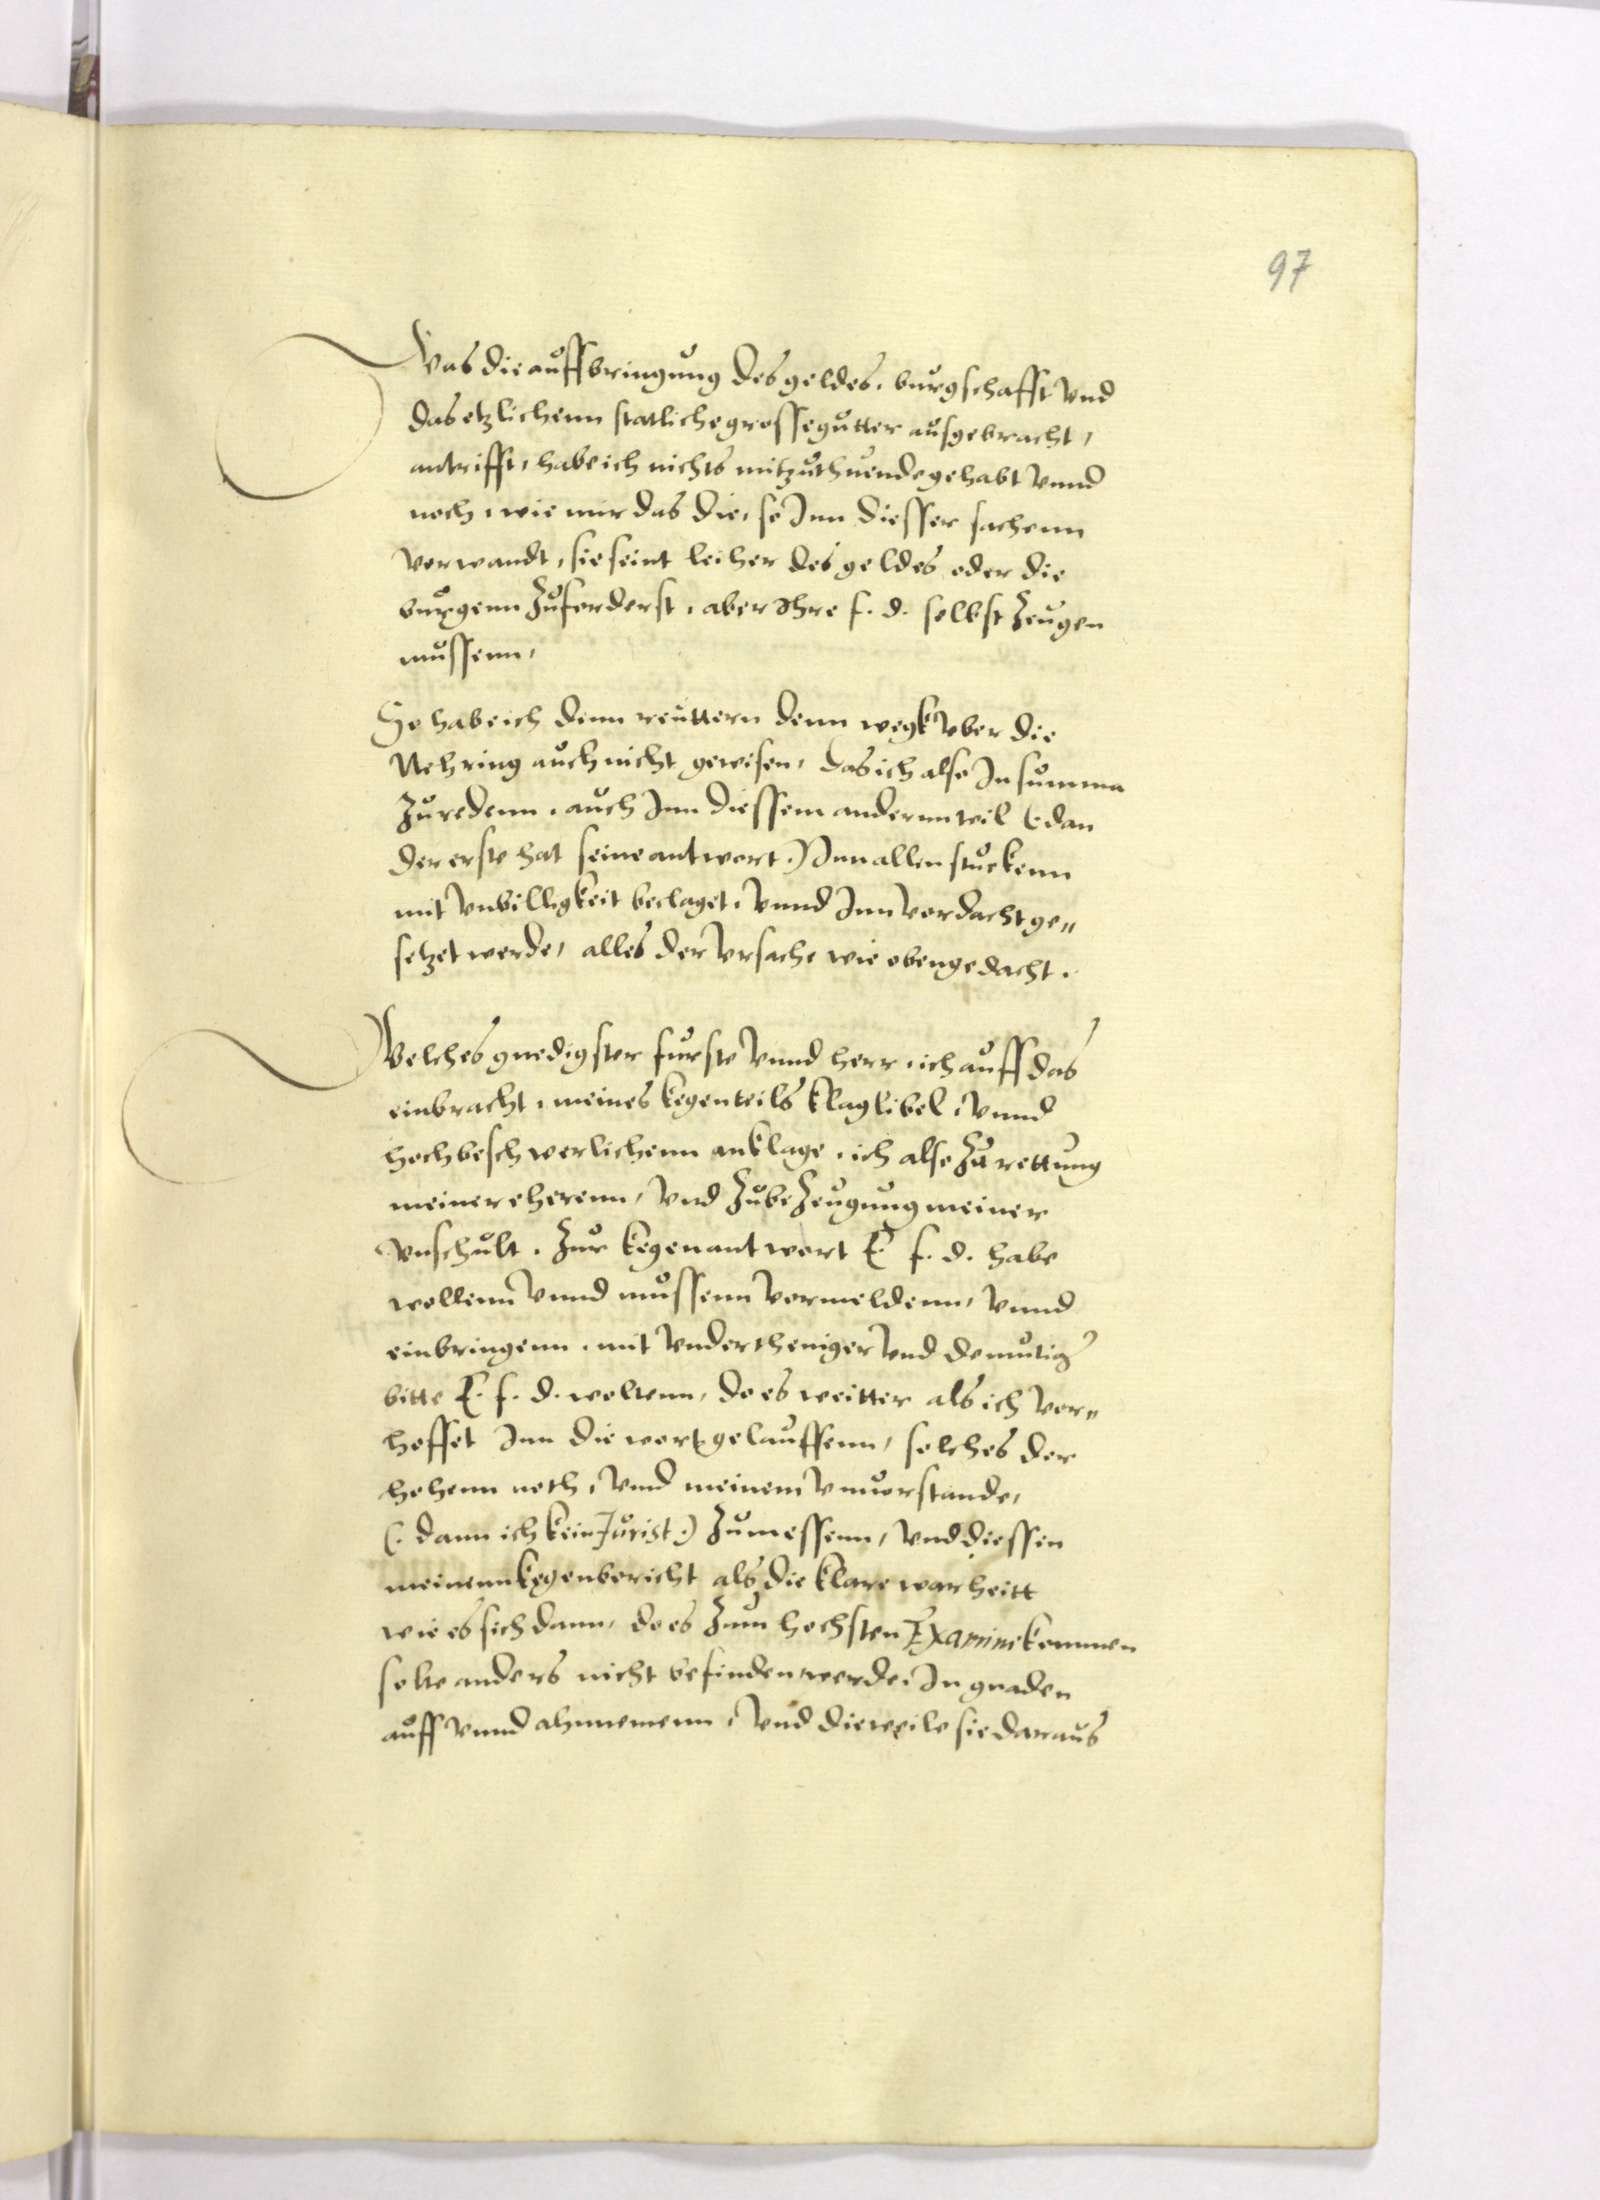 97
Was die auffbringung des geldes, burgschafft vnd
das etzlichenn statliche grosse gutter ausgebracht,
antrifft, habe ich nichts mitzuthuende gehabt vnnd
noch, wie mir das die, so Inn diesser sachenn
verwandt, sie seint leiher des geldes oder die
burgenn zuforderst, aber Ihre f. d. selbst zeugen
mussenn,
So habe ich denn reuttern denn wegk vber die
Nehring auch nicht gewisen, das ich also In summa
zu redenn, auch Inn diessem andernn teil (: dan
der erste hat seine antwort :) Inn allen stuckenn
mit vnbilligkeit beclaget, vnnd Inn verdacht ge„
setzet werde, alles der vrsache wie oben gedacht.
Welches gnedigster furste vnnd herr, ich auff das
einbracht, meines kegenteils klaglibel, vnnd
hochbeschwerlichenn anklage, ich also zu rettung
meiner eherenn, vnd zu bezeugung meiner
vnschult, zur kegenantwort E. f. d. habe
wollenn vnnd mussenn vermeldenn, vnnd
einbringenn, mit vndertheniger vnd demutig
bitte E. f. d. woltenn, do es weitter als ich ver„
hoffet Inn die wort gelauffenn, solches der
hohenn noth, vnd meinem vnuorstande,
(: dann ich kein Jurist :) zumessenn, vnd diessen
meinenn kegenbericht als die klare warheitt
wie es sich dann, do es zum hochsten Examine kommen
solte anders nicht befinden werde, In gnaden
auff vnnd ahnnemenn, vnd dieweile sie daraus